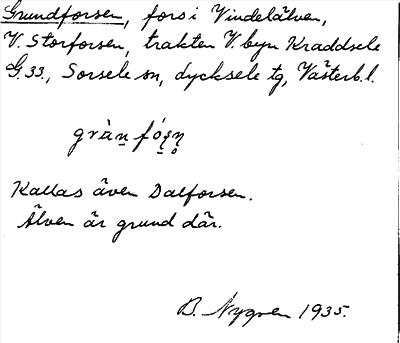 Grundforsen, fors i Vindelälven,
V. Storforsen, trakten V. byn Kraddsele
G. 33., Sorsele sn, Lycksele tg, Västerb. l.
Kallas även Dalforsen.
Älven är grund där.
B. Nygren 1935.